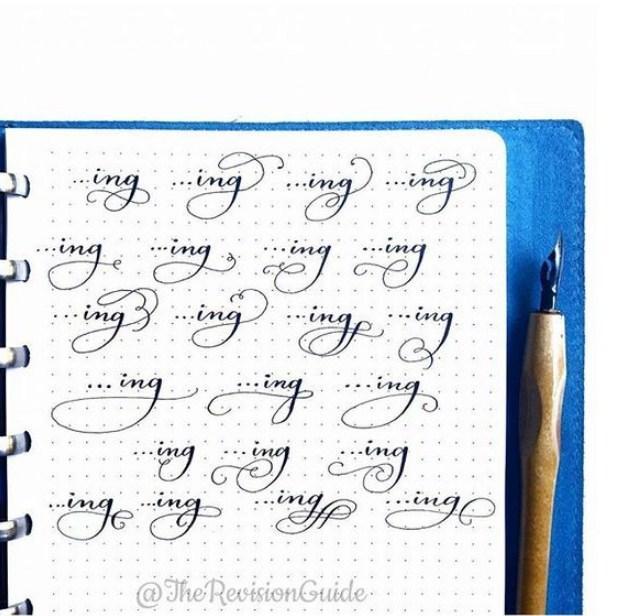 ...ing ...ing ...ing ...ing
...ing ...ing ...ing ...ing
...ing ...ing ...ing ...ing
...ing ...ing ...ing
...ing ...ing ...ing
...ing ...ing ...ing ...ing
@TheRevisionGuide